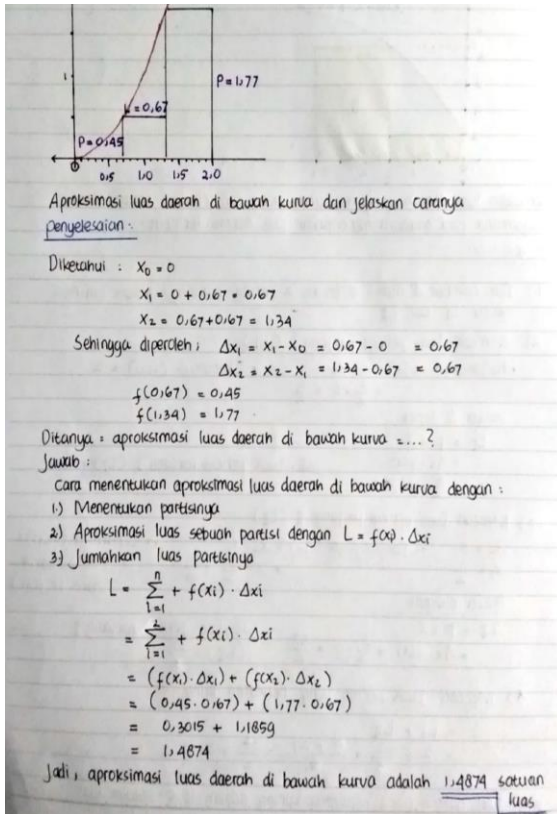 1
P=1,77
l=0,67
P=0,45
0
0,5 1,0 1,5 2,0
Aproksimasi luas daerah di bawah kurva dan jelaskan caranya
penyelesaian :
Diketahui : X₀ = 0
X₁ = 0 + 0,67 = 0,67
X₂ = 0,67+0,67 = 1,34
Sehingga diperoleh ; Δx₁ = X₁ - X₀ = 0,67 - 0 = 0,67
Δx₂ = X₂ - X₁ = 1,34 - 0,67 = 0,67
f(0,67) = 0,45
f(1,34) = 1,77
Ditanya = aproksimasi luas daerah di bawah kurva = ...?
Jawab :
Cara menentukan aproksimasi luas daerah di bawah kurva dengan :
1.) Menentukan partisinya
2) Aproksimasi luas sebuah partisi dengan L = f(xi) . Δxi
3) Jumlahkan luas partisinya
L = n Σ i=1 + f(xi) . Δxi
= 2 Σ i=1 + f(xi) . Δxi
= (f(x₁) . Δx₁) + (f(x₂) . Δx₂)
= (0,45 . 0,67) + (1,77 . 0,67)
= 0,3015 + 1,1859
= 1,4874
Jadi, aproksimasi luas daerah di bawah kurva adalah 1,4874 satuan
luas